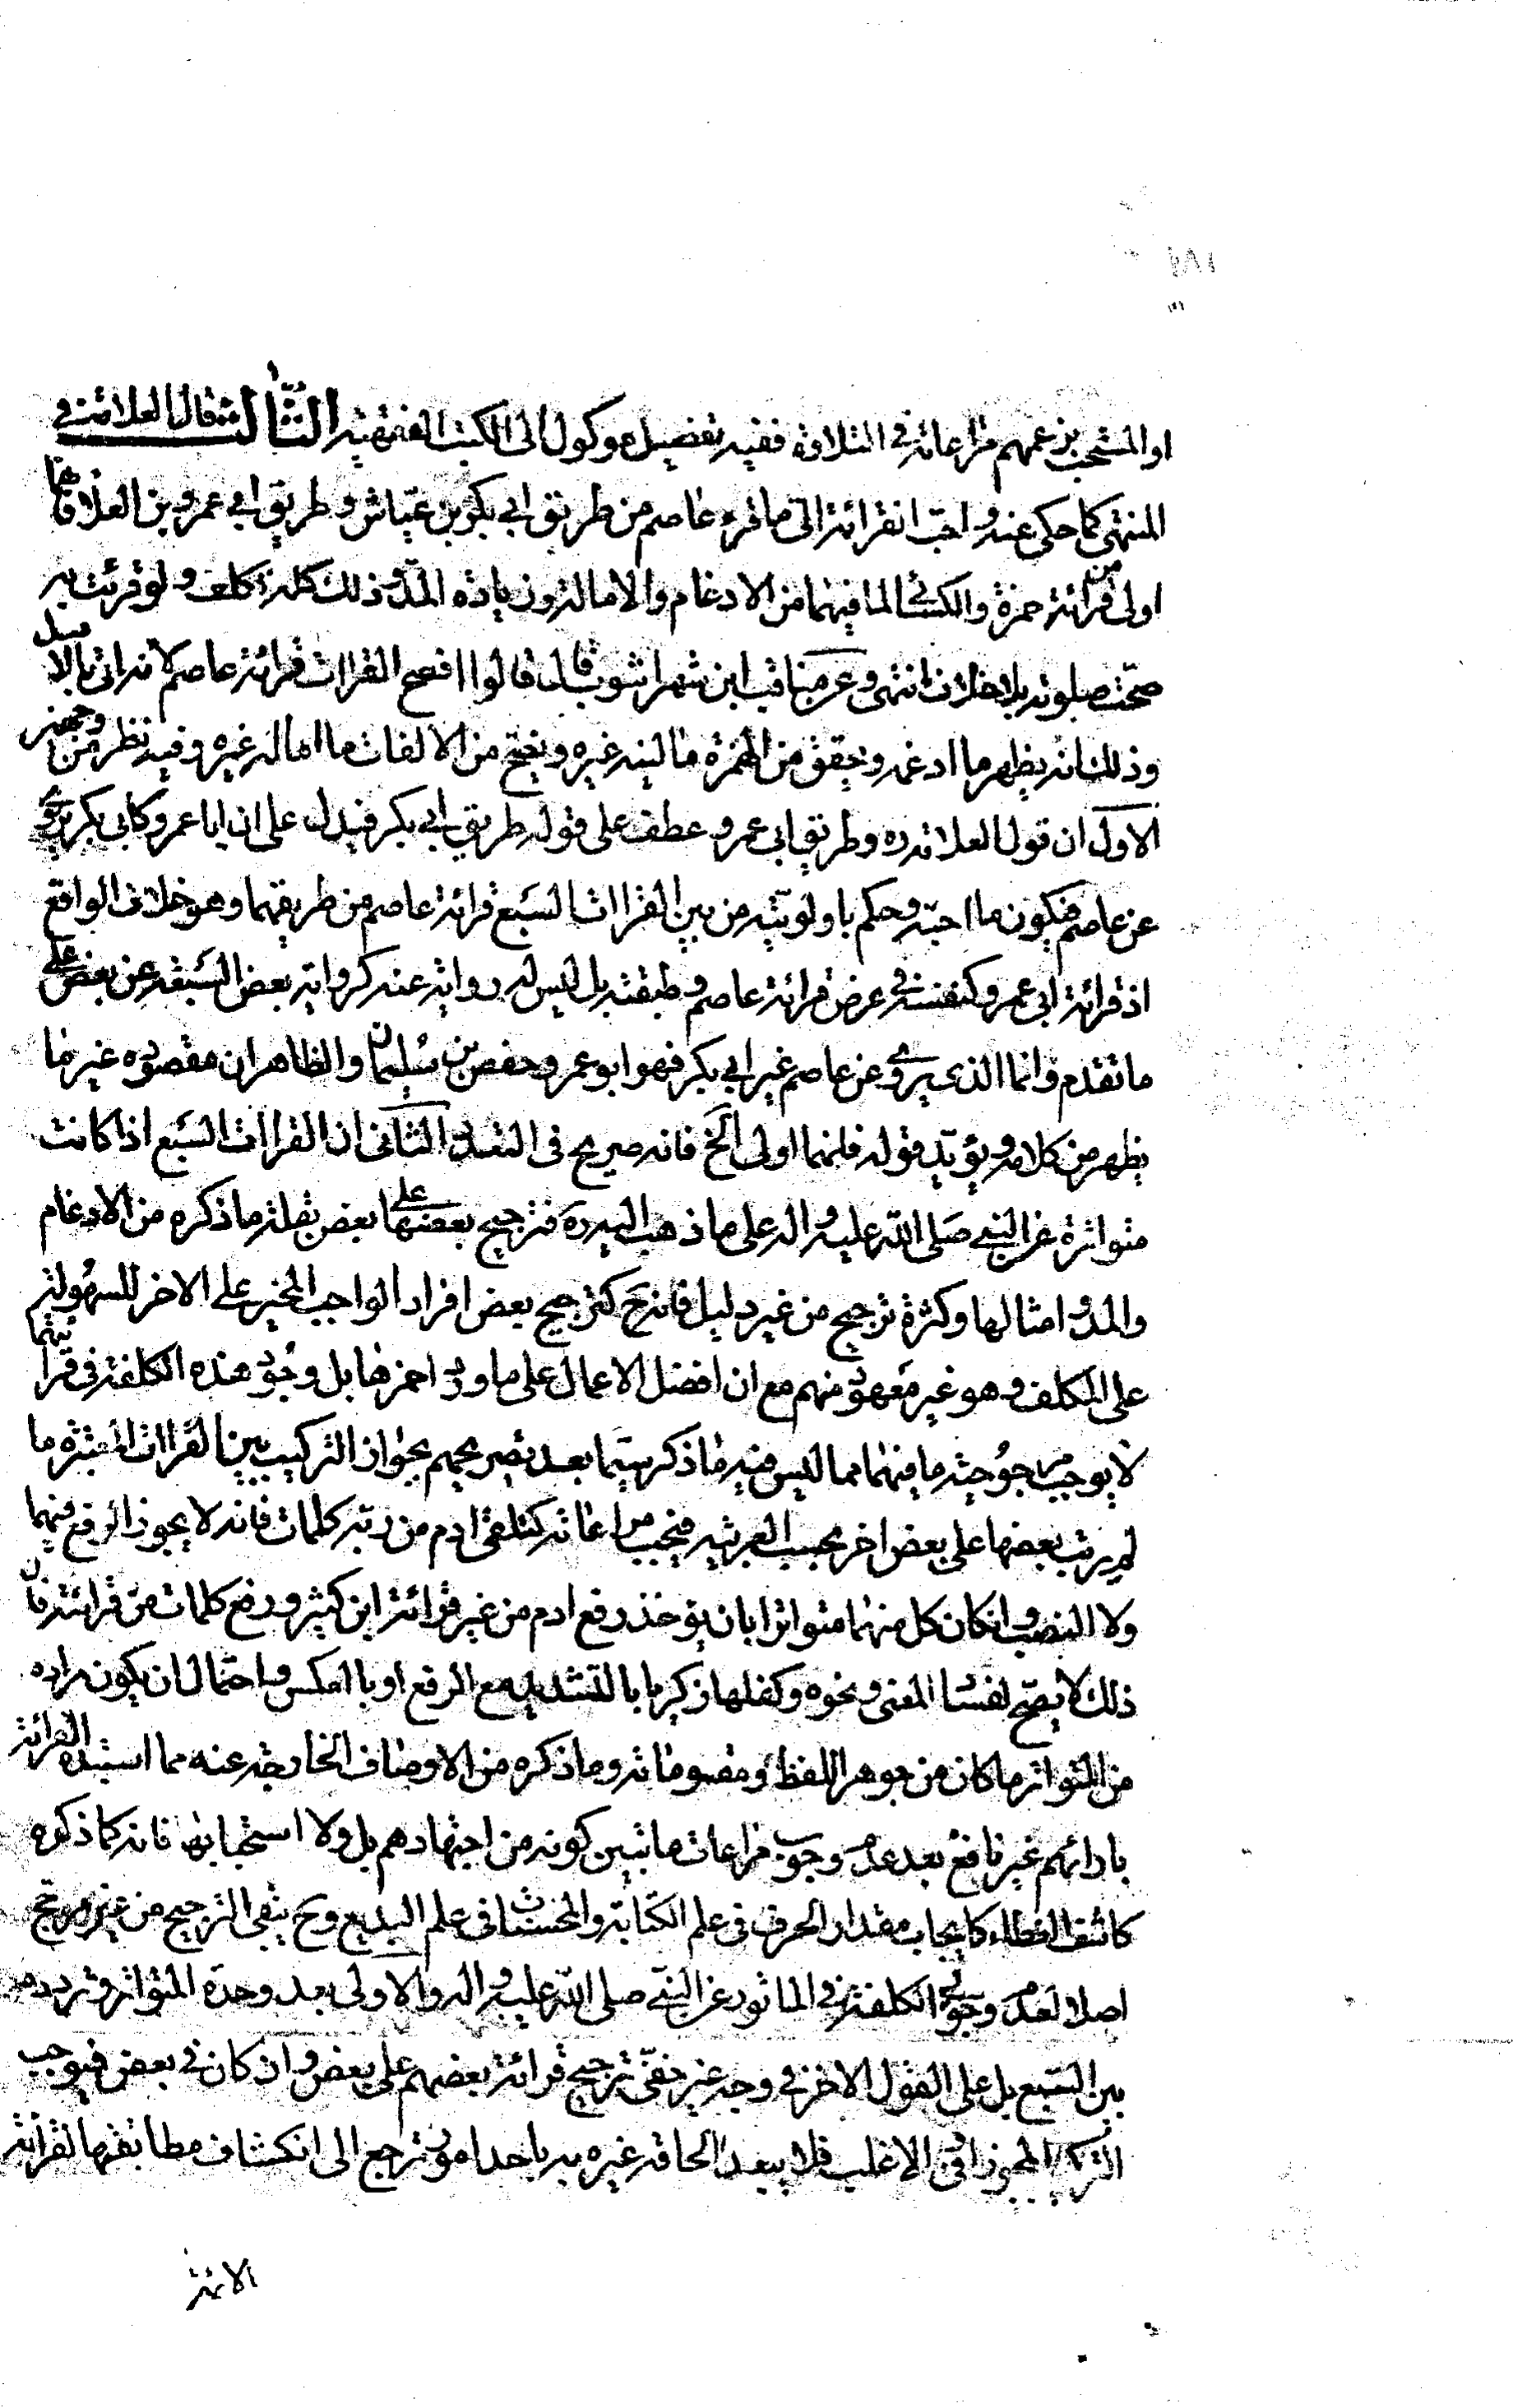 او المستحب بزعمهم مراعاته في التلاوة ففيه تفضيل موكول الى الكتب الفقهية الثالث قال العلامة في
المنتهى كما حكى عنه واحب القرائة الىّ ما قرء عاصم من طريق ابي بكر بن عياش وطريق ابي عمرو بن العلا فانها
اولى من قرائة حمزة والكسائي لما فيهما من الادغام والامالة وزيادة المدّ وذلك كله تكلف ولو قرئت به
صحّت صلوته بلا خلاف انتهى وعن مناقب ابن شهراشوب قال قالوا افصح القراات قرائة عاصم لانه اتى بالاصل
وذلك انه يظهر ما ادغمه ويحقق من الهمزة ما لينه غيره ويفتح من الالفات ما اماله غيره وفيه نظر من وجهين
الاول ان قول العلامة ره وطريق ابي عمرو عطف على قوله طريق ابي بكر فيدل على ان ابا عمرو كابى بكر يروى
عن عاصم فيكون ما احبّه وحكم باولويّته من بين القراات السّبع قرائة عاصم من طريقهما وهو خلاف الواقع
اذ قرائة ابى عمرو كنفسه في عرض قرائة عاصم وطبقته بل ليس له رواية عنه كرواية بعض السّبعة عن بعض على
ما تقدم وانما الذى يروى عن عاصم غير ابي بكر فهو ابو عمرو حفص بن سليمان والظاهر ان مقصوده غير ما
يظهر من كلامه ويؤيّد قوله فانهما اولى الخ فانه صريح فى التعدّد الثانى ان القراات السّبع اذا كانت
متواترة عن النبي صلى الله عليه واله على ما ذهب اليه ره فترجيح بعضها على بعض بقلة ما ذكره من الادغام
والمدّ وامثالها وكثرة ترجيح من غير دليل فانه ح كترجيح بعض افراد الواجب المخير على الاخر للسهولة
على المكلف وهو غير معهود منهم مع ان افضل الاعمال على ما ورد احمزها بل وجود هذه الكلفة فى قرائتهما
لا يوجب مرجوحيّة ما فيهما مما ليس فيه ما ذكر سيّما بعد تصريحهم بجواز التركيب بين القراات المعتبره ما
لم يرتب بعضها على بعض اخر بحسب العربية فيجب مراعاته كتلقى ادم من ربّه كلمات فانه لا يجوز الرفع فيهما
ولا النصب وان كان كل منهما متواترا بان يؤخذ رفع ادم من غير قرائة ابن كثير ورفع كلمات من قرائته فان
ذلك لا يصحّ لفساد المعنى ونحوه وكفلها زكريا بالتشديد مع الرفع او بالعكس واحتمال ان يكون مراده
من المتواتر ما كان من جوهر اللفظ ومقوماته وما ذكره من الاوصاف الخارجة عنه مما استبد القرائة
بارائهم غير نافع بعد عدم وجوب مراعات ما تبين كونه من اجتهادهم بل ولا استحبابها فانه كما ذكره
كاشف الغطاء كايجاب مقدار الحرف فى علم الكتابة والمحسنات فى علم البديع وح يبقى الترجيح من غير مرجّح
اصلا لعدم وجود الكلفة في الماثور عن النبي صلى الله عليه واله والاولى بعد وحدة المتواتر وتردده
بين السّبع بل على القول الاخر في وجه غير خفىّ ترجيح قرائة بعضهم على بعض وان كان فى بعض فيوجب
التركيب المجوز فى الاغلب فلا يبعد الحاق غيره به باحد امور ترجع الى انكشاف مطابقتها لقرائة
الائمة